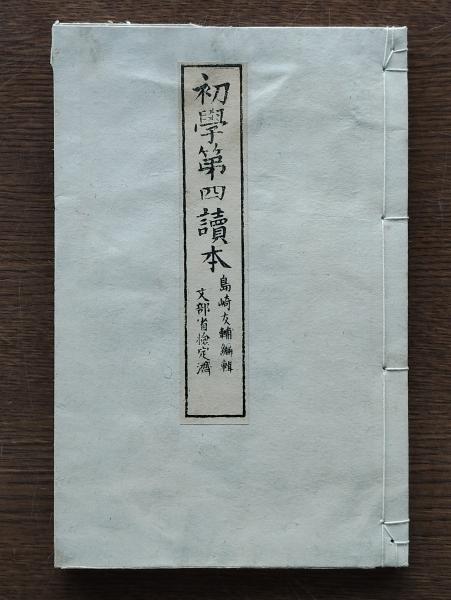 初學第四讀本
島崎友輔編輯
文部省檢定濟